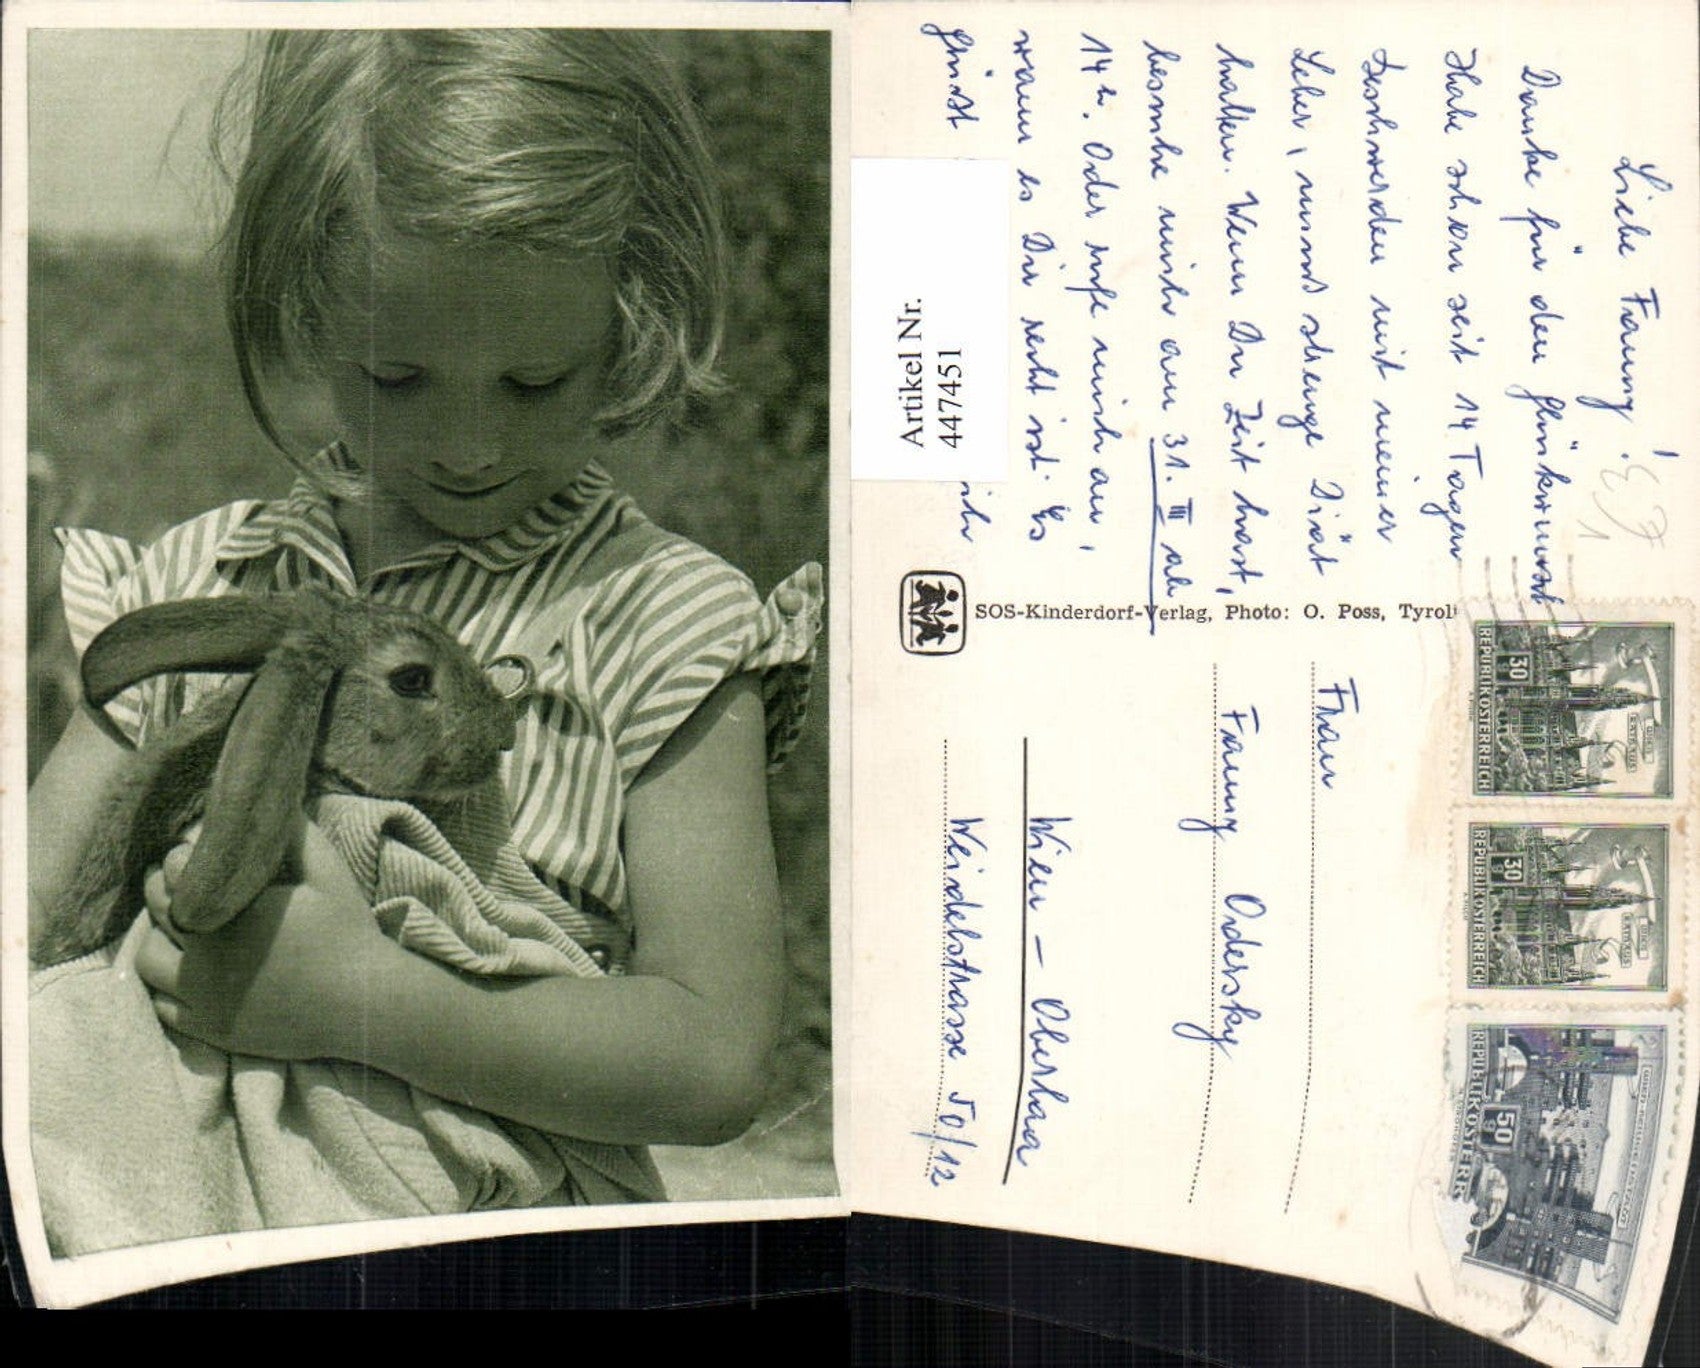 Liebe Fanny!
Danke für den Glückwunsch
Habe schon seit 14 Tagen
Beschwerden mit meiner
Leber, muss strenge Diät
halten. Wenn Du Zeit hast,
besuche mich am 31. III ab
14h. Oder rufe mich an,
wann es Dir recht ist. Es
grüsst
ich
Artikel Nr.
447451
SOS-Kinderdorf-Verlag, Photo: O. Poss, Tyrol
Frau
Fanny Odersky
Wien – Oberlaa
Weidelstrasse 50/12
30 g
REPUBLIK ÖSTERREICH
30 g
REPUBLIK ÖSTERREICH
50 g
REPUBLIK ÖSTERREICH